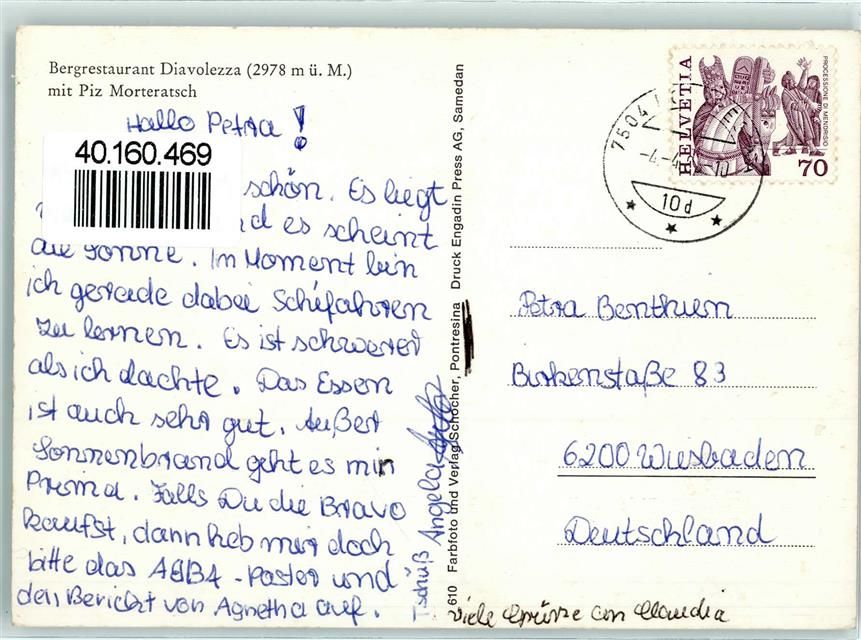 Bergrestaurant Diavolezza (2978 m ü. M.)
mit Piz Morteratsch
Hallo Petra!
40.160.469
schön. Es liegt
es scheint
die Sonne. Im Moment bin
ich gerade dabei Schifahren
zu lernen. Es ist schwerer
als ich dachte. Das Essen
ist auch sehr gut. Außer
Sonnenbrand geht es mir
Prima. Falls Du die Bravo
kaufst, dann heb mir doch
bitte das ABBA-Poster und
den Bericht von Agnetha auf.
Tschüß Angela
610 Farbfoto und Verlag Schocher, Pontresina Druck Engadin Press AG, Samedan
HELVETIA
PROCESSIONE DI MENDRISIO
70
7504
10d
Petra Benthien
Birkenstaße 83
6200 Wiesbaden
Deutschland
Viele Grüsse an Claudia